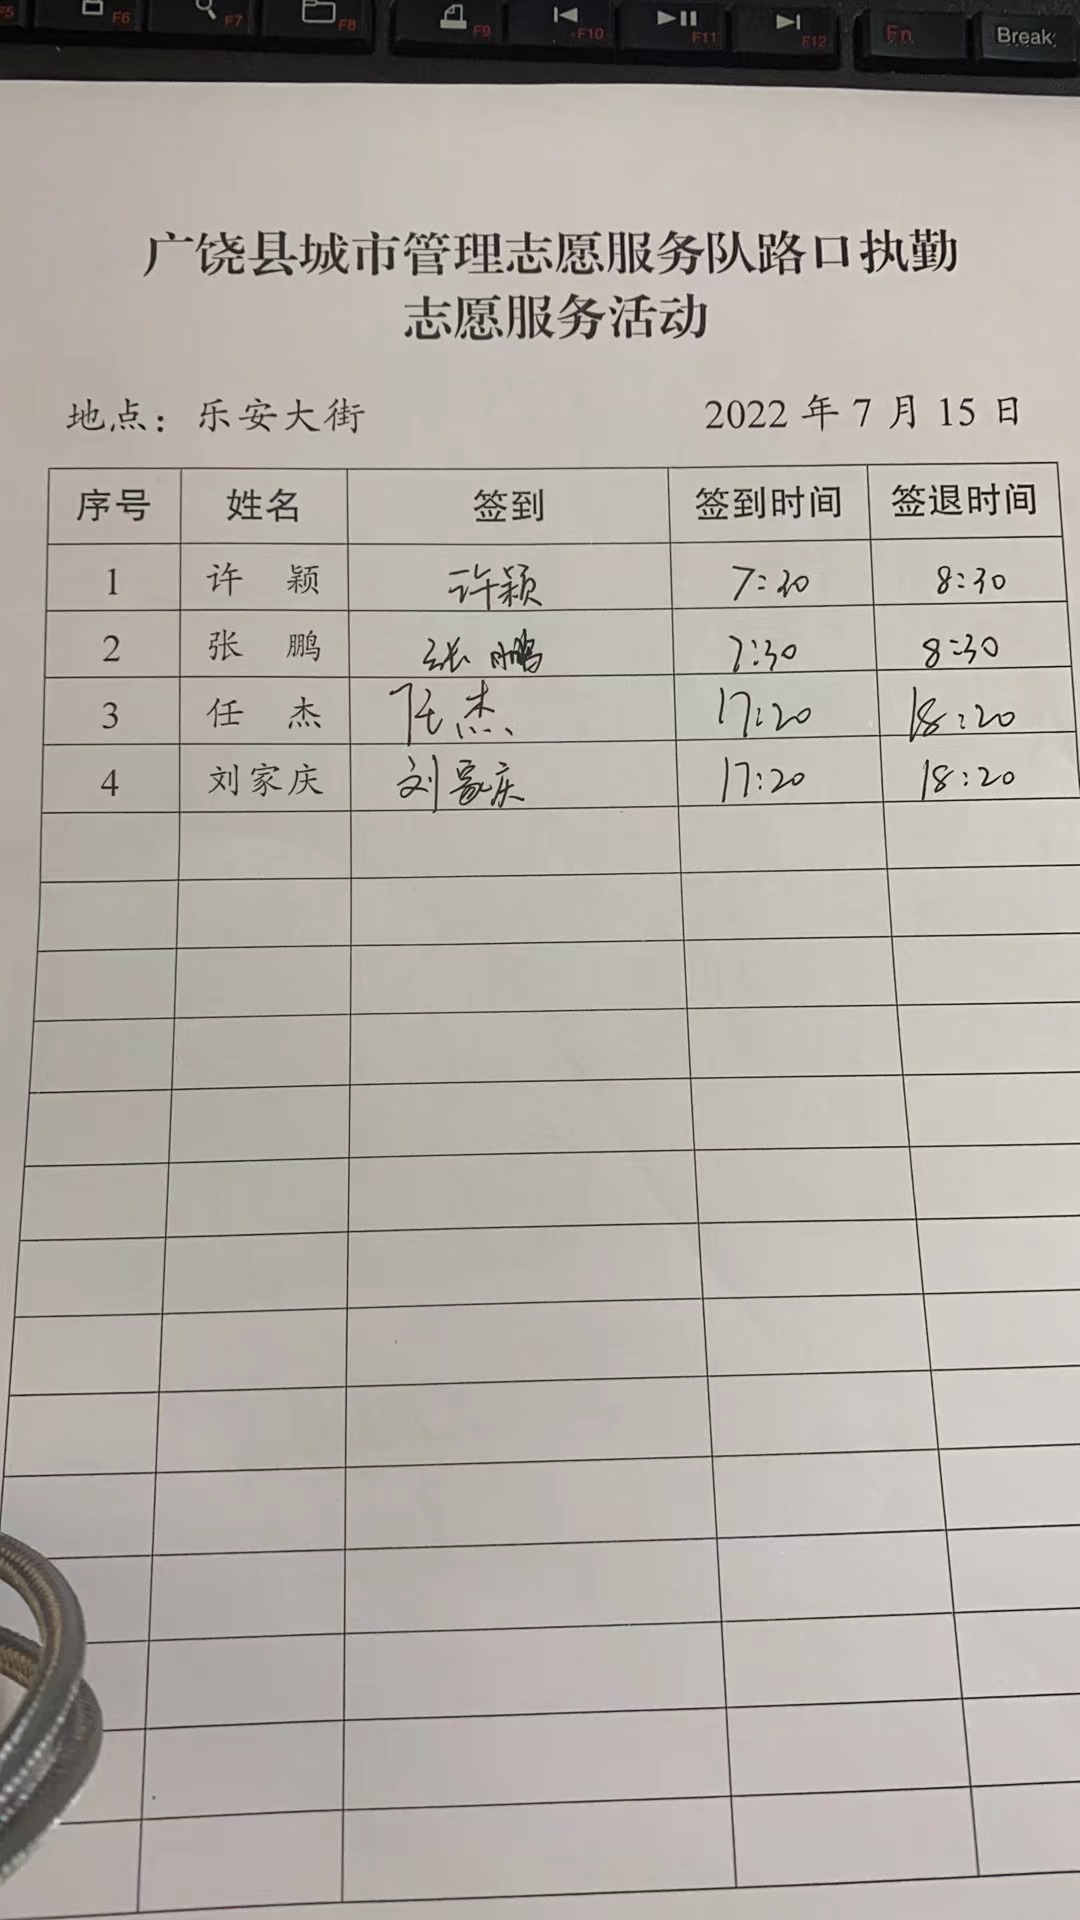 F5 F6 F7 F8 F9 F10 F11 F12 Fn Break
广饶县城市管理志愿服务队路口执勤
志愿服务活动
地点：乐安大街 2022年7月15日
序号 姓名 签到 签到时间 签退时间
1 许颖 许颖 7:30 8:30
2 张鹏 张鹏 7:30 8:30
3 任杰 任杰 17:20 18:20
4 刘家庆 刘家庆 17:20 18:20